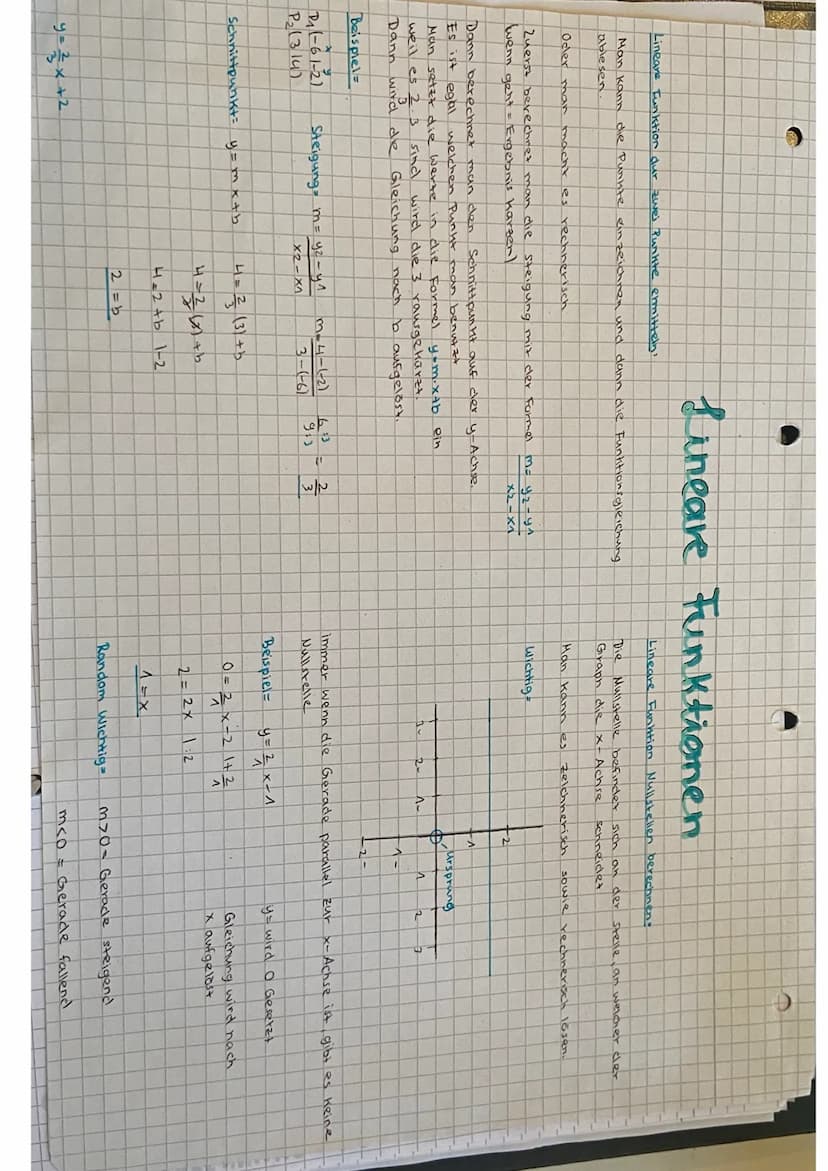 Lineare Funktionen
Lineare Funktion dur zwei Punkte ermitteln:
Man kann die Punkte einzeichnen und dann die Funktionsgleichung
ablesen.
Oder man macht es rechnerisch
Zuerst berechnet man die Steigung mit der Formel m = y2-y1 / x2-x1
(wenn geht = Ergebnis kürzen)
Dann berechnet man den Schnittpunkt auf der y-Achse.
Es ist egal welchen Punkt man benutzt
Man setzt die Werte in die Formel y=m·x+b ein
weil es 2/3 3 sind wird die 3 rausgekürzt.
Dann wird de Gleichung nach b aufgelöst.
Beispiel=
x y
P1(-6|-2) Steigung= m= y2-y1 / x2-x1 m= 4-(-2) / 3-(-6) 6:3 / 9:3 = 2/3
P2(3|4)
Schnittpunkt= y=mx+b 4=2/3(3)+b
4=2/3(3)+b
4=2+b |-2
2=b
y=2/3x+2
Lineare Funktion Nullstellen berechnen:
Die Nullstelle befindet sich an der Stelle, an welcher der
Graph die x-Achse schneidet
Man kann es zeichnerisch sowie rechnerisch lösen.
Wichtig=
2
1
Ursprung
3- 2- 1- 1 2 3
1-
2-
immer wenn die Gerade parallel zur x-Achse ist, gibt es keine
Nullstelle
Beispiel= y=2/1x-1 y= wird 0 Gesetzt
0=2/1x-2 |+2/1 Gleichung wird nach
x aufgelöst
2=2x |:2
1=x
Random Wichtig= m>0= Gerade steigend
m<0= Gerade fallend